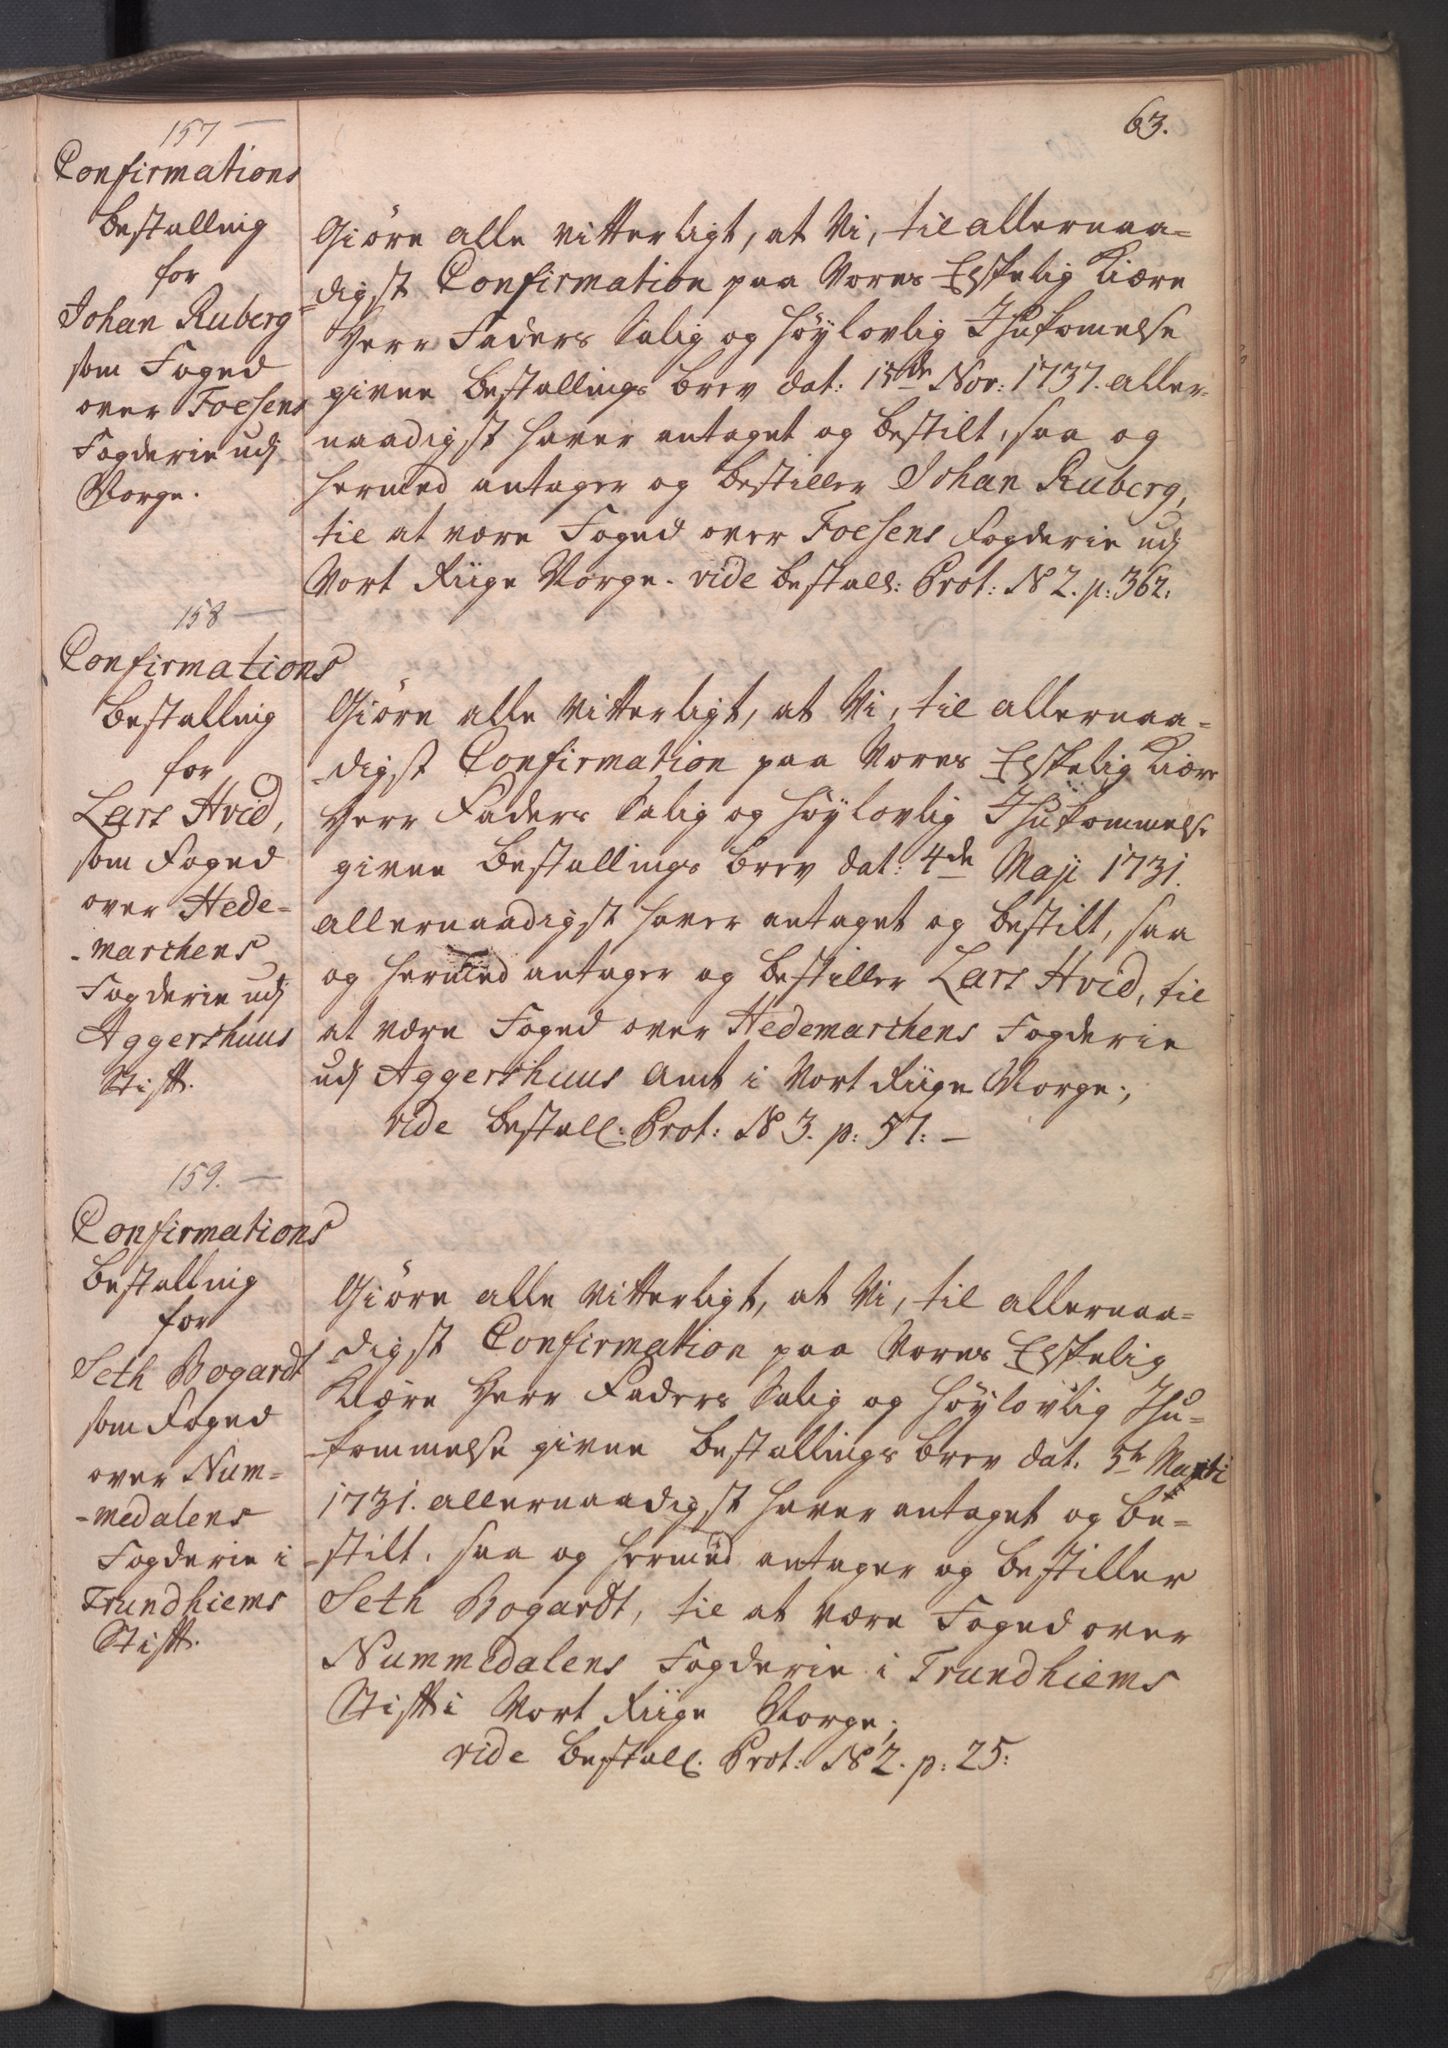 63.
157
Confirmations
Bestalling
for
Johan Ruberg
som Foged
over Foesens
Fogderie udj
Norge.
Giöre alle vitterligt, at Vi, til allernaa=
=digst Confirmation paa Vores Elskelig Kiære
Herr Faders Salig og Höylovlig Ihukomelse
given Bestallings brev dat: 15de Nov: 1737. aller-
naadigst haver antaget og bestilt, saa og
hermed antager og bestiller Johan Ruberg,
til at være Foged over Foesens Fogderie udj
Vort Riige Norge. vide Bestall: Prot: N 2. p: 362.
158
Confirmations
Bestalling
for
Lars Hvid,
som Foged
over Hede=
=marchens
Fogderie udj
Aggershuus
Stift.
Giöre alle Vitterligt, at Vi, til allernaa=
=digst Confirmation paa Vores Elskelig Kiære
Herr Faders Salig og Höylovlig Ihukommelse
given Bestallings brev dat: 4de Maji 1731.
allernaadigst haver antaget og bestilt, saa
og hermed antager og bestiller Lars Hvid, til
at være Foged over Hedemarchens Fogderie
udj Aggershuus Amt i Vort Riige Norge;
vide Bestall: Prot: N 3. p: 57: –
159.
Confirmations
Bestalling
for
Seth Bogardt
som Foged
over Num=
=medalens
Fogderie i
Trundhiems
Stift.
Giöre alle Vitterligt, at Vi, til allernaa=
=digst Confirmation paa Vores Elskelig
Kiære Herr Faders Salig og Höylovlig Ihu=
=kommelse given Bestallings brev dat. 5te
1731. allernaadigst haver antaget og be=
=stilt, saa og hermed antager og bestiller
Seth Bogardt, til at være Foged over
Nummedalens Fogderie i Trundhiems
Stift i Vort Riige Norge;
vide Bestall. Prot: N 2. p: 25: